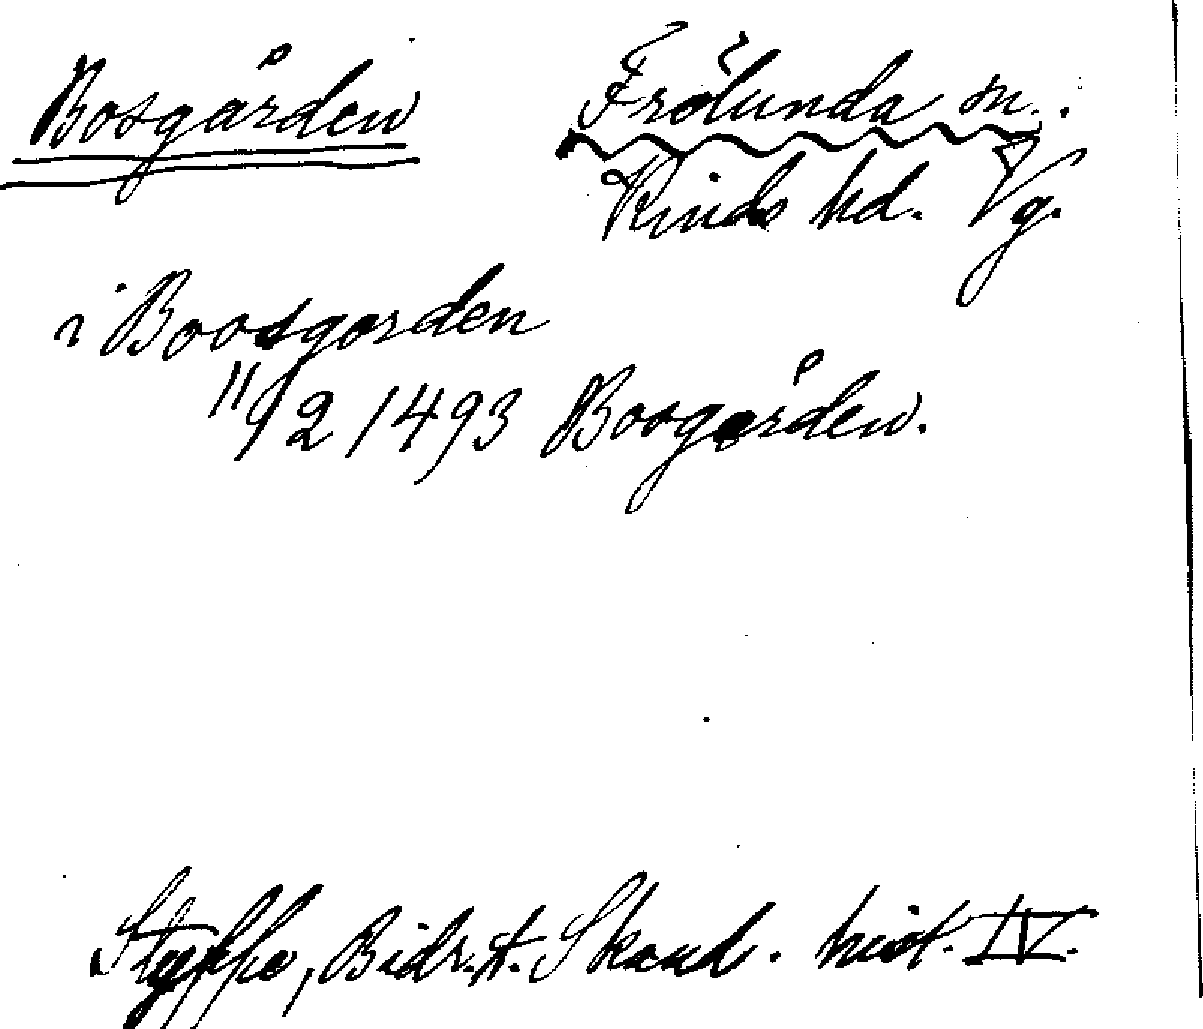 Bosgården Frölunda sn.
Kinds hd. Vg.
i Boosgorden
11/2 1493 Boosgården.
Styffe, Bidr. t. Skand. hist. IV.